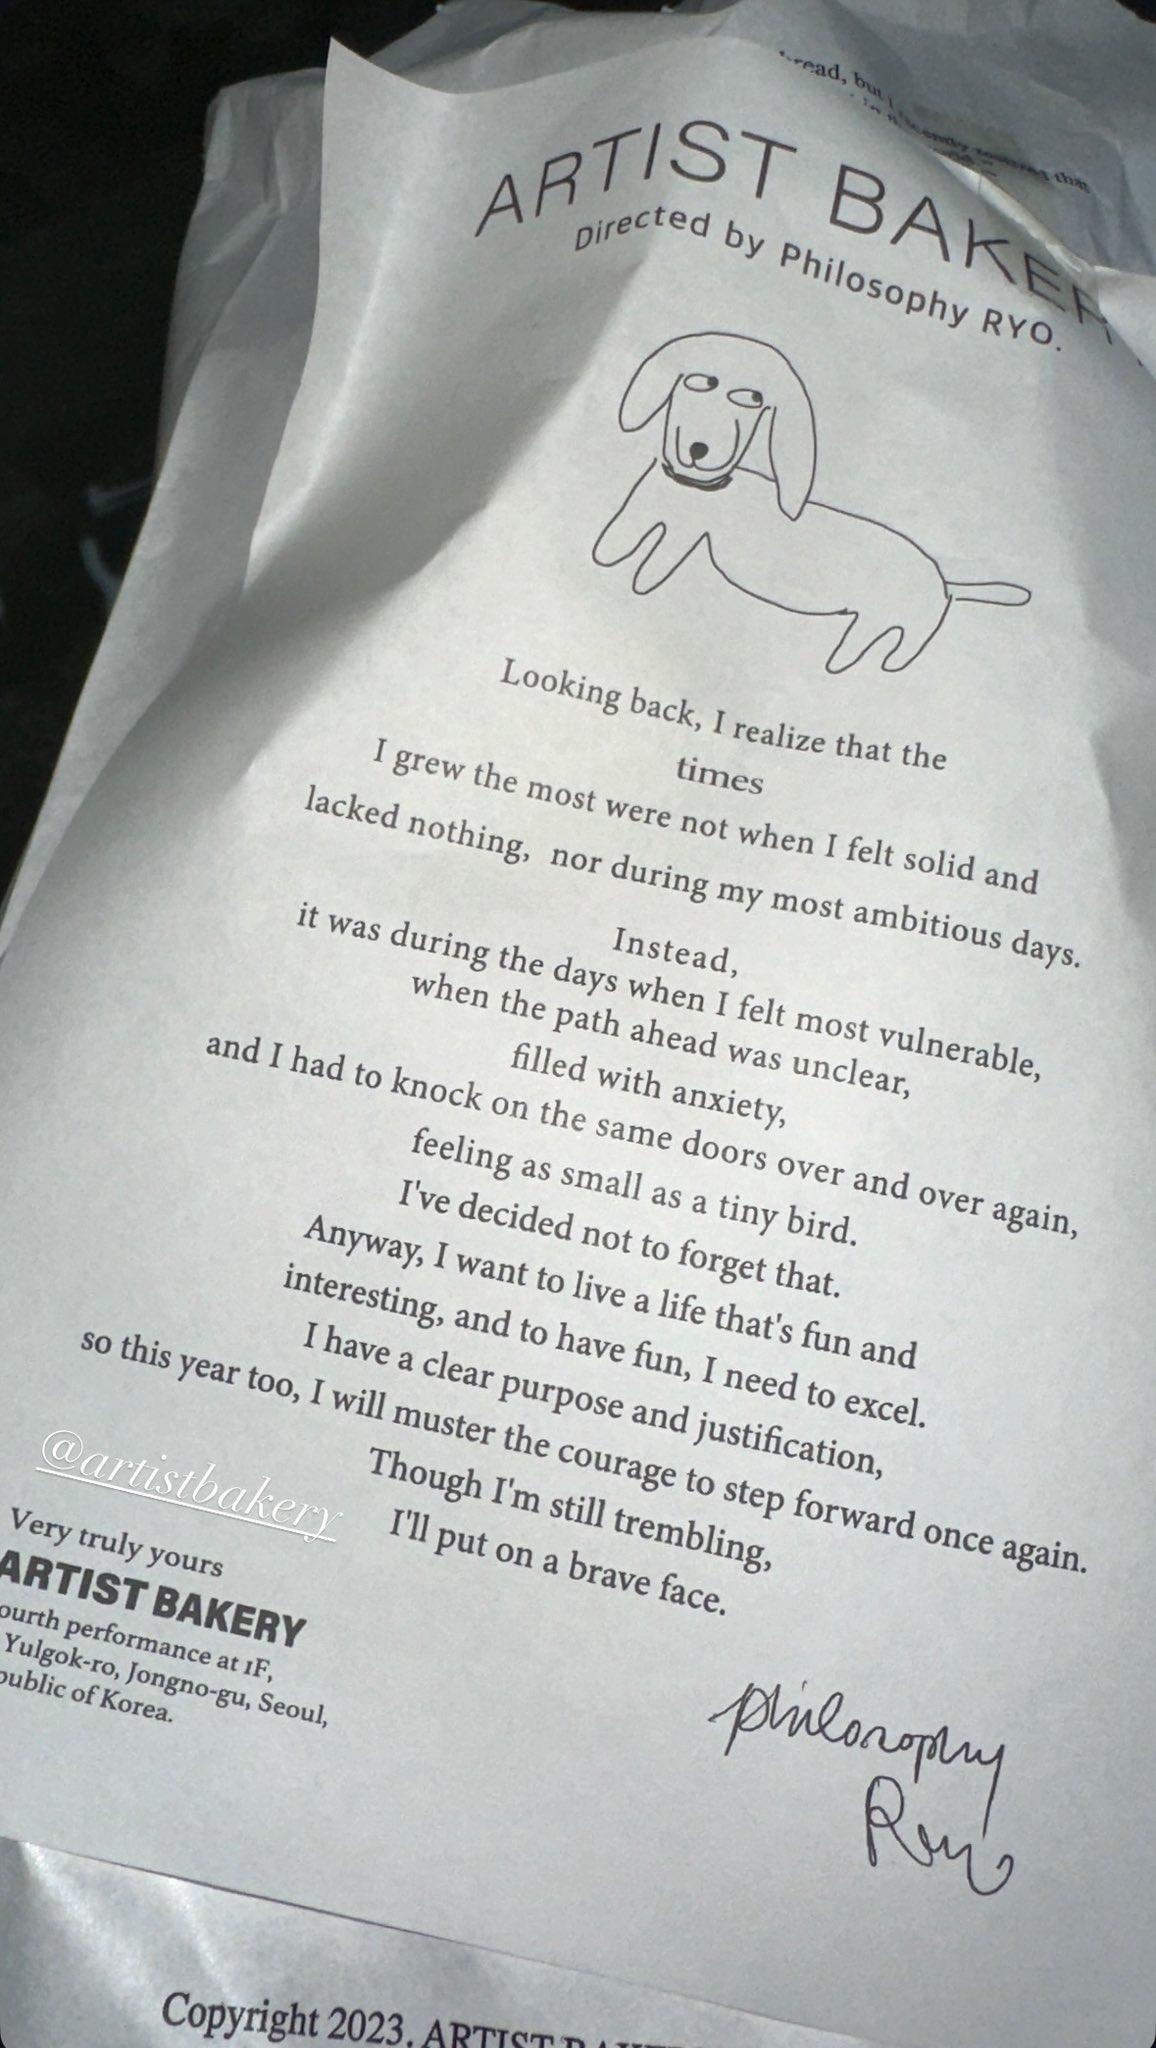 but I recently realized that
ARTIST BAKER
Directed by Philosophy RYO.
Looking back, I realize that the
times
I grew the most were not when I felt solid and
lacked nothing, nor during my most ambitious days.
Instead,
it was during the days when I felt most vulnerable,
when the path ahead was unclear,
filled with anxiety,
and I had to knock on the same doors over and over again,
feeling as small as a tiny bird.
I've decided not to forget that.
Anyway, I want to live a life that's fun and
interesting, and to have fun, I need to excel.
I have a clear purpose and justification,
so this year too, I will muster the courage to step forward once again.
Though I'm still trembling,
I'll put on a brave face.
@artistbakery
Very truly yours
ARTIST BAKERY
ourth performance at 1F,
Yulgok-ro, Jongno-gu, Seoul,
public of Korea.
philosophy
Ryo
Copyright 2023. ARTIST BAKE